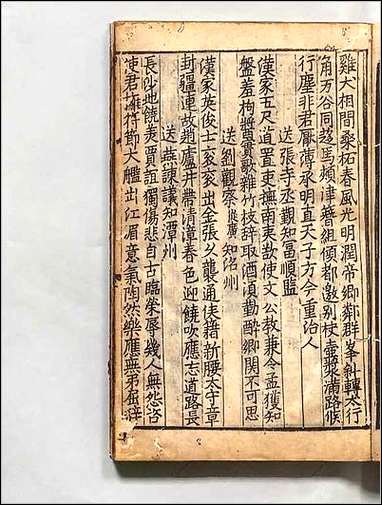 雞犬相聞桑柘春風光明潤帝鄉鄰群峯斜轉太行
角万谷同趍馬頰津簪組傾都邀別杖壺漿滿路候
行塵非君厭薄承明直天子方今重治人
送張寺丞觀知富順監
漢家五尺道置吏撫南夷欲使文公教兼令孟獲知
盤羞枸醬實歌雜竹枝辭取酒須勤醉鄉關不可思
送劉觀察從廣知洺州
漢家英俊士衮衮出金張夕襲通侯籍新腰太守章
封疆連故趙廬井帶清漳春色迎饒吹應志道路長
送燕諫議知潭州
長沙地饒美賈誼獨傷悲自古臨榮辱幾人無怨咨
使君擁符節大艦出江眉意氣陶然樂應無弔屈辭